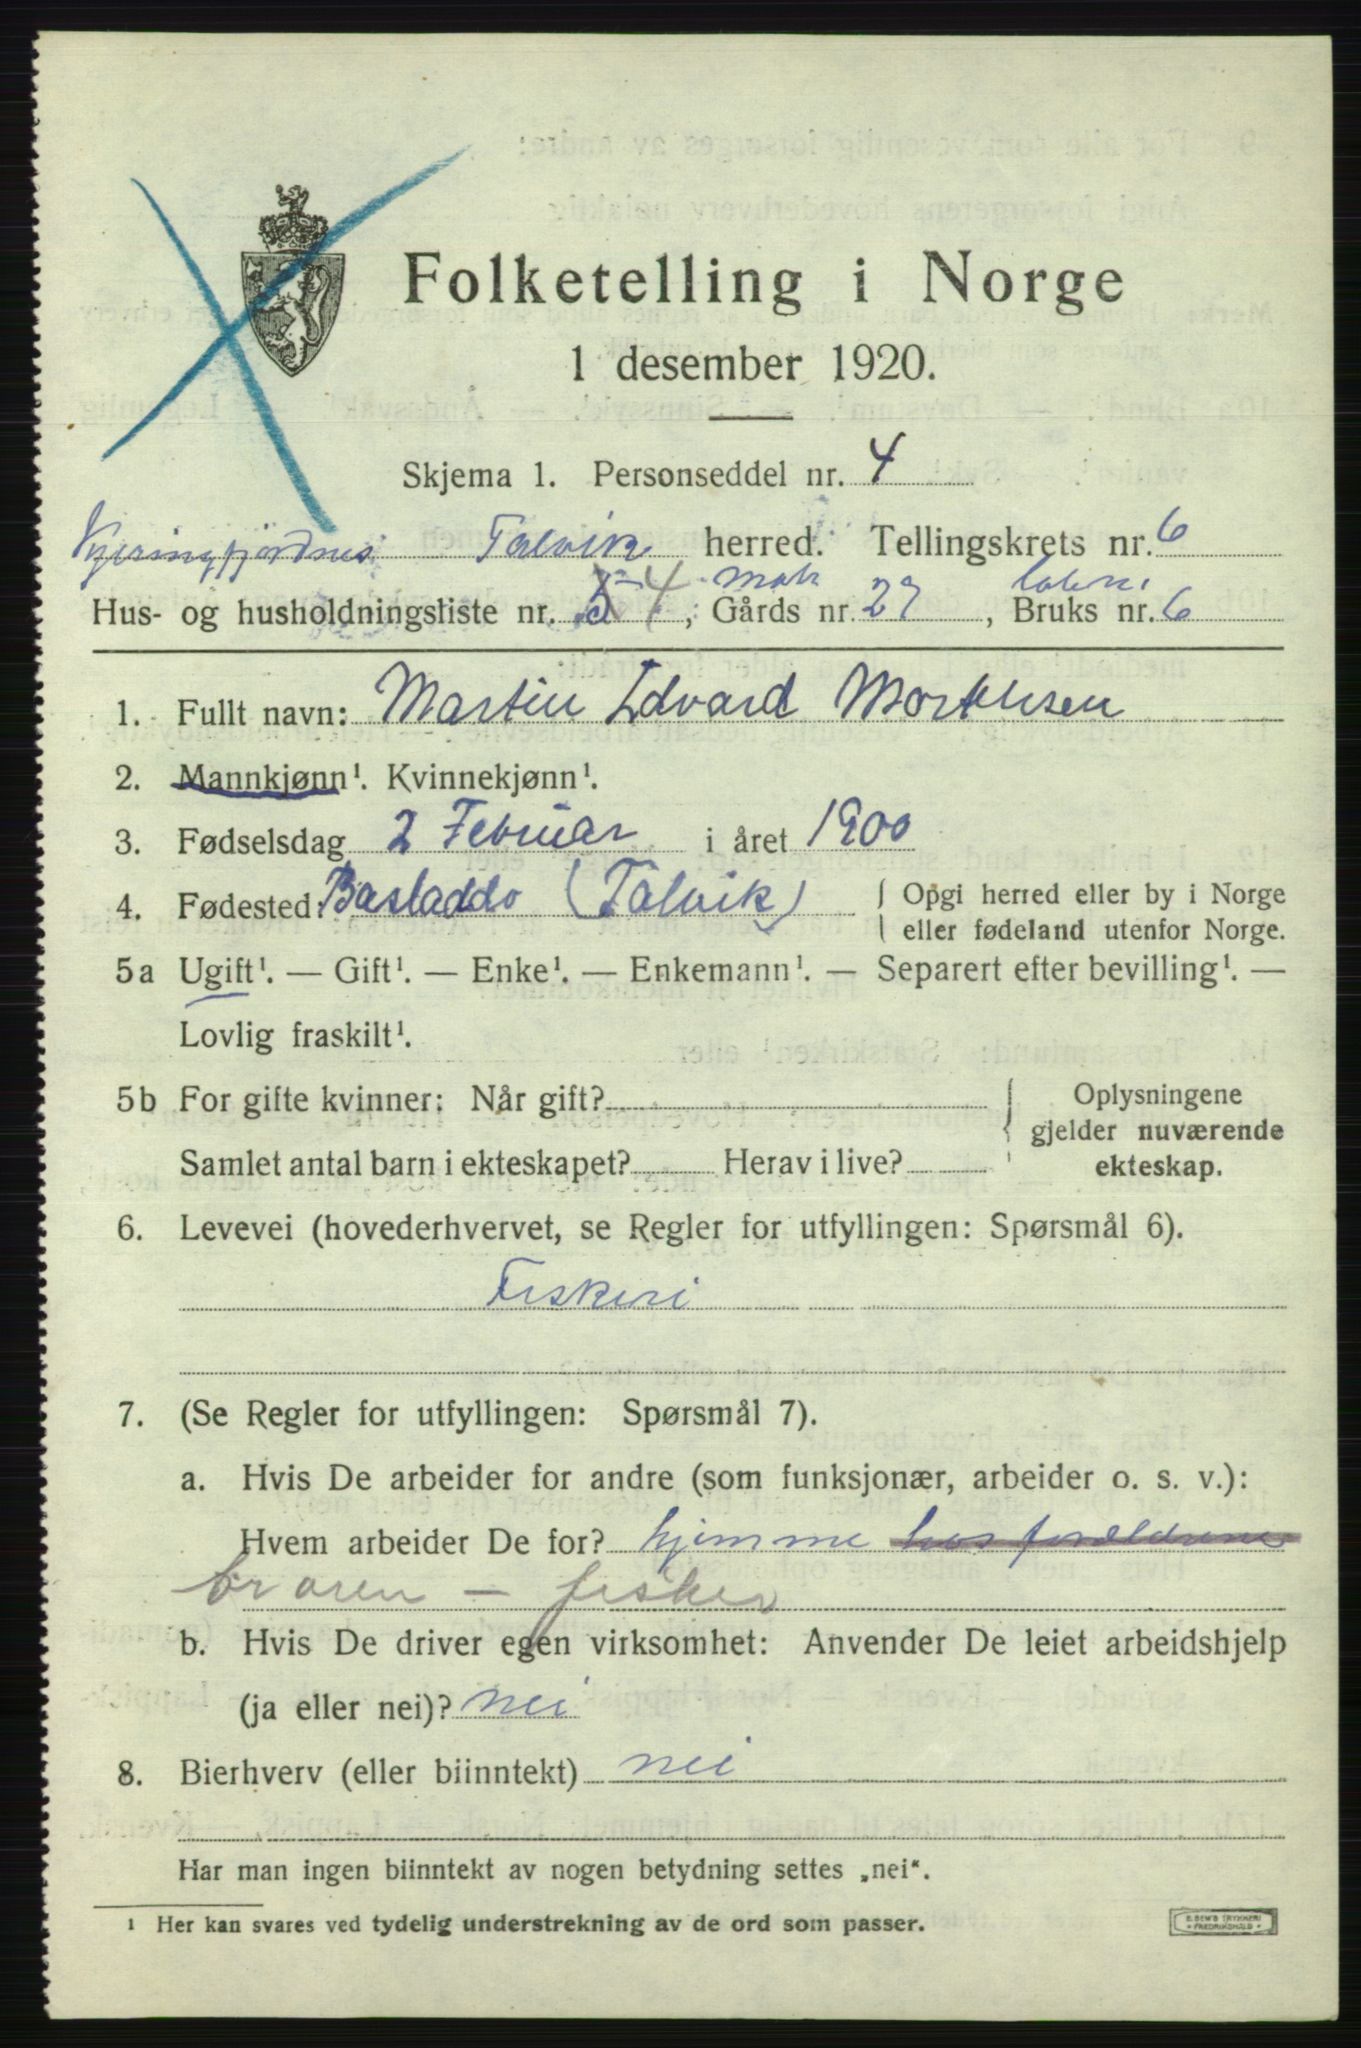 Folketelling i Norge
1 desember 1920.
Skjema 1. Personseddel nr. 4
Talvik herred. Tellingskrets nr. 6
Hus- og husholdningsliste nr. 5 4, Gårds nr. 27, Bruks nr. 6
1. Fullt navn: Martin Edvard Mortensen
2. Mannkjønn¹. Kvinnekjønn¹.
3. Fødselsdag 2 Februar i året 1900
4. Fødested: (Talvik) Opgi herred eller by i Norge
eller fødeland utenfor Norge.
5a Ugift¹. — Gift¹. — Enke¹. — Enkemann¹. — Separert efter bevilling¹. —
Lovlig fraskilt¹.
5b For gifte kvinner: Når gift? Oplysningene
gjelder nuværende
Samlet antal barn i ekteskapet? Herav i live? ekteskap.
6. Levevei (hovederhvervet, se Regler for utfyllingen: Spørsmål 6).
Fiskeri
7. (Se Regler for utfyllingen: Spørsmål 7).
a. Hvis De arbeider for andre (som funksjonær, arbeider o. s. v.):
Hvem arbeider De for? hjemme hos forældrene
broren — fisker
b. Hvis De driver egen virksomhet: Anvender De leiet arbeidshjelp
(ja eller nei)? nei
8. Bierhverv (eller biinntekt) nei
Har man ingen biinntekt av nogen betydning settes „nei“.
¹ Her kan svares ved tydelig understrekning av de ord som passer.